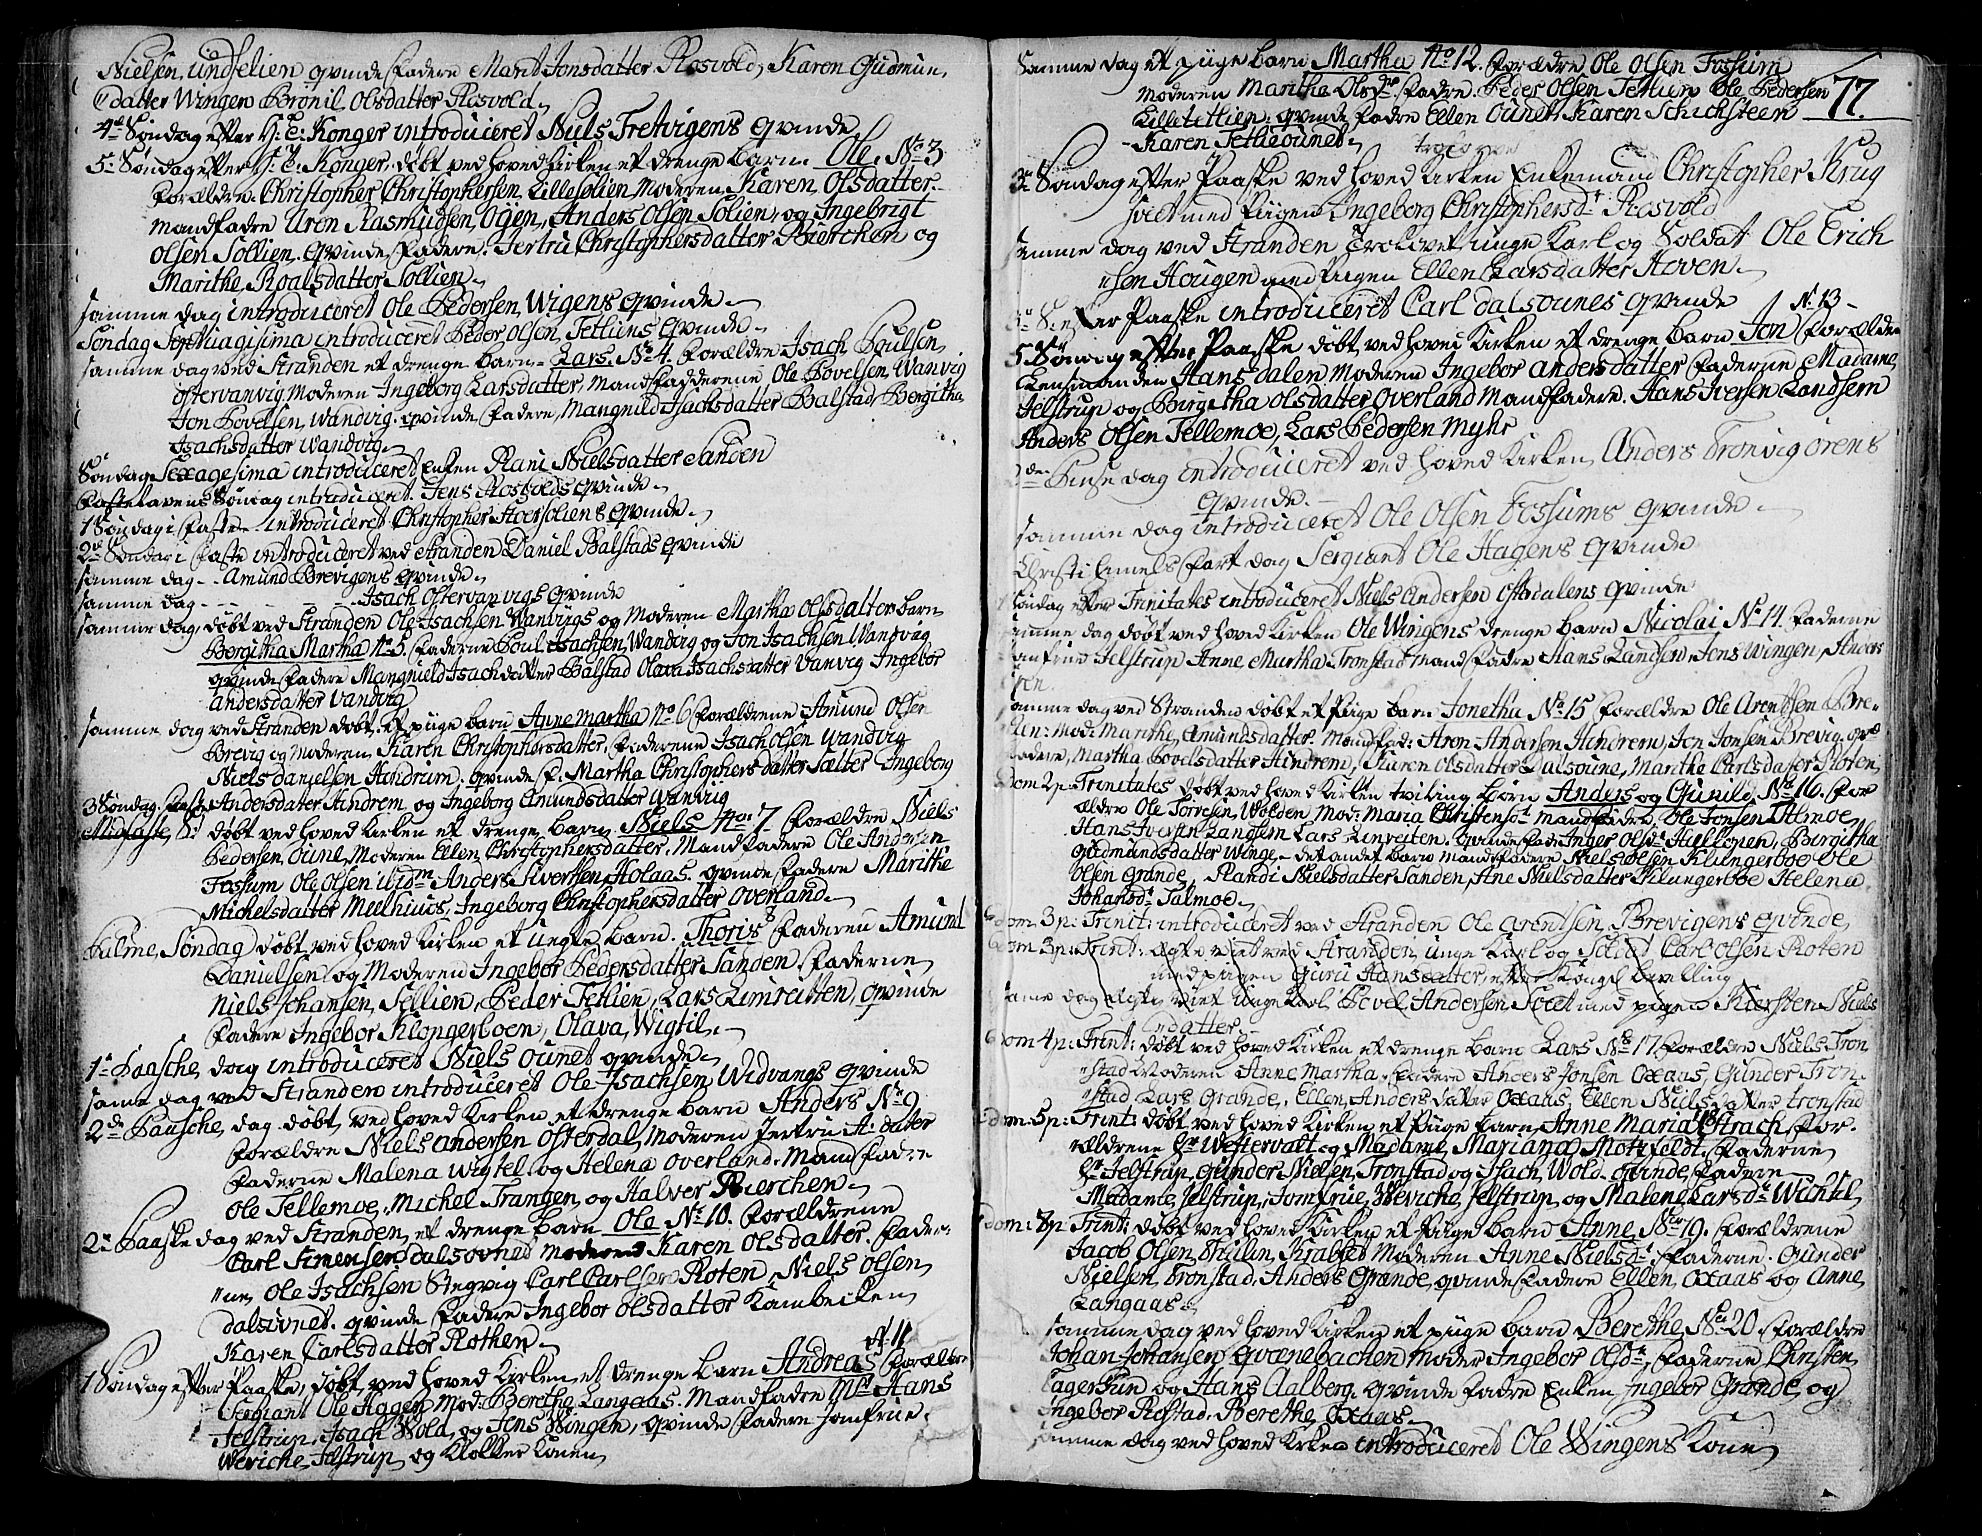 Nielsen, undselien qvinde fadere Marit Jonsdatter Rosvold, Karen Gudmun,
"datter Wingen Brønil Olsdatter Rosvold.
4de Søndag efter H: 3: Konger introduceret Niels Tretvigens qvinde
5te Søndag efter H: 3: Konger, døbt ved hoved Kirken et drenge barn. Ole. No 3
forældre Christopher Christophersen Lillesølien Moderen Karen Olsdatter.
mandfadre Uren Rasmudsen Oyen, Anders Olsen Solien, og Ingebrigt
Olsen Sollien. qvinde fadere. Jertru Christophersdatter Bierchem og
Marithe Roalsdatter Sollien.
samme dag introduceret Ole Pedersen, Wigens qvinde.
Søndag Septuagisima introduceret Peder Olsen, Tetliens qvinde.
samme dag ved Stranden et drenge barn. Lars. No 4. forældre Isach Poulsen
østervanvig. Moderen Ingeborg Larsdatter. mand fadderene Ole Povelsen, Wanvig
Jon Povelsen, Wandvig. qvinde fadere, Mangnild Isachsdatter Balstad, Bergitha
Isachsdatter Wandvig.
Søndag Sexagesima introduceret Enken Rani Nielsdatter Sanden
Fastelavens Søndag introduceret. Jens Rosvolds qvinde.
1 Søndag i faste introduceret Christopher Hoersøliens qvinde.
2de Søndag i faste introduceret ved Stranden Daniel Balstads qvinde
samme dag - - Amund Brevigens qvinde.
samme dag - - - - Isach Ostervanvigs qvinde
samme dag, døbt ved Stranden Ole Isachsen Wanvigs og Moderen Martha Olsdatters barn
Bergitha Martha No 5. faderne Poul Isachsen, Wandvig og Jon Isachsen Wandvig
qvinde fadere Mangnield Isachdatter Balstad Olava Isachsdatter Vanvig Ingebor
Andersdatter Vandvig
samme dag ved Stranden døbt et pige barn Anne Martha No 6 forældrene Amund Olsen
Brevig og Moderen Karen Christophersdatter, faderene Isach Olsen Wandvig
Niels Danielsen Hindrum. qvinde f. Martha Christophersdatter Sælter Ingeborg
3 Søndag i faste Andersdatter Hindrem, og Ingeborg Amundsdatter Wanvig
Midfaste, S: døbt ved hoved Kirken et drenge barn, Niels No: 7 forældre Niels
Pedersen, Oune, Moderen Ellen Christophersdatter. Mandfadere Ole Andersen
Fossum Ole Olsen Anders Siversten, Holaas. qvinde fadere Marithe
Michelsdatter Meelhuus, Ingeborg Christophersdatter Overland.
Palme, Søndag døbt ved hoved Kirken et uegte barn. Thoris 8 faderen Amund
Danielsen og Moderen Ingebor Pedersdatter Sanden. faderne
Niels Johansen, Sellien, Peder Tetlien, Lars Limreitten, qvinde
fadere Ingebor Klongerboen, Olava, Wigtil.
1te Paasche dag introduceret Niels Ounet qvinde.
same dag ved Stranden introduceret Ole Isachsen Widvangs qvinde
2de Paasche, dag, døbt, ved hoved Kirken et drenge barn Anders No 9
forældre Niels Andersen Osterdal, Moderen Jertru A: dater
faderne Malena Wigtel og Helena Overland. Mandfadre
Ole Tellemoe, Michel Trangen, og Halver Bierchen.
2te Paaske dag ved Stranden, et drenge barn Ole No 10. forældrene
Carl Simensen Dalsovned Moderen Karen Olsdatter. fader-
"ne, Ole Isachsen Stegvig Carl Carlsen Roten, Niels Olsen,
Dalsivnet. qvinde fadere Ingebor Olsdatter Kambecken
Karen Carlsdatter Rothen. N: 11
1 Søndag efter Paaske, døbt, ved hoved Kirken, et drenge barn Andreas forældre
Sergiant Ole Hagen Mod: Berethe Langaas. Mandfadre Mr Hans
Jelstrup, Isach Wold, og Jens Wingen, qvinde fadere Jomfrue.
Weriche Jelstrup og Klokker Konen
77.
Samme dag et pige barn Martha No 12. forældre Ole Olsen Fossum
Moderen Maritha Olsdr. fadre. Peder Olsen Tetlien Ole Pedersen
Lilletetlien: qvinde fadre Ellen Ounet, Karen Schichsteen
- Karen Tetlieounet.
3de Søndag efter Paaske ved hoved Kirken Enkemand Christopher Krug
Soelt med Pigen Ingeborg Christophersdr Rosvold
samme dag ved Stranden trolovet unge Karl og Soldat Ole Erich
"sen Hougen med Pigen Ellen Larsdatter Hoven.
Paaske introduceret Carl Dalsounes qvinde N: 13 -
5 Søndag efter Paaske døbt, ved hoved Kirken et drenge barn Jon forældre
Lensmanden Hans Dalen Moderen Ingebor Andersdatter faderne Madame
Jelstrup og Birgitha Olsdatter Overland Mandfadere. Hans Iversen Landsem
Anders Olsen Tellemoe, Lars Pedersen Myhr
2den Pinse dag introduceret ved hoved Kirken, Anders Tronvig ørens
qvinde.
samme dag introduceret Ole Olsen Fossums qvinde.
Christi Himels fart dag Sergiant Ole Hagens qvinde
Søndag efter Trinitates introduceret Niels Andersen Osterdalens qvinde
samme dag døbt ved hoved Kirken Ole Wingens drenge barn Nicolai No 14. faderne
Jomfrue Jelstrup Anne Martha Tronstad mandfadre Hans Landsen, Jens Wingen, Anders

samme dag ved Stranden døbt et Pige barn Jonetha No 15 forældre Ole Arentsen Bre-
Mod: Marithe, Amundsdatter. Mandfad: Aron Andersen Hindrem, Jon Jonsen Brevig. qvi
fadere, Martha Povelsdatter Hindrem, Karen Olsdatter Dalsoune, Marithe Carlsdatter Roten,
Dom 2 p: Trinitates døbt ved hoved Kirken tviling barn Anders og Gunild, No 16. for
ældre Ole Torresen, Wolden Mod: Maria Christensdr Mandfadre, Ole Jonsen Tellmoe
Hans Iversen Landsem Lars Linreiten. qvinde fad: Inger Olsdr Hellopen, Bergitha
Gudmundsdatter Winge - det andet barn mandfadere Niels Olsen Klungerboe Ole
Olsen Grande, Randi Nielsdatter Sanden, Ane Nielsdatter Klungerboe Helena
Johansdr Talmoe.
Dom: 3 p: Trinit: introduceret ved Stranden Ole Arentsen, Brevigens qvinde,
Dom. 3 p: Trint: egte viet ved Stranden, unge Karl og Soldat Carl Olsen Roten
med pigen Guru Hansdatter, efter Kongel bevilling
same dag egte viet unge Karl Povel Andersen Soelt med pige Kiersten Niels
datter.
Dom 4 p: Trint: døbt ved hoved Kirken et drenge barn Lars No 17. forældre Niels Tron
"stad Moderen Anne Martha. fadere Anders Jonsen Oxaas, Gunder Tron-
"stad Lars Grande, Ellen, Anders datter Oxaas, Ellen Niels datter Tronstad
Dom. 5 p: Trint: døbt ved hoved Kirken et Pige barn Anne Maria Strach for-
ældrene Hr Westervalt og Madame, Mariana Motzfeldt. faderne
Hr Jelstrup, Gunder Nielsen, Tronstad og Isach Wold. qvinde, fadere
Madame, Jelstrup, Jomfrue, Weriche, Jelstrup, og Malene Larsdr Wichtel,
Dom: 7 p: Trint: døbt ved hoved Kirken et Pige barn Anne, No 19. forældrene
Jacob Olsen, Thulin, Krabbet Moderen Anne Nielsdr. faderne. Gunder
Nielsen, Tronstad. Anders Grande, qvinde fadere Ellen, Oxaas og Anne,
Langaas.
samme dag ved hoved Kirken et pige barn Berethe, No 20. forældre
Johan Johansen qvænebachen Moder Ingebor Olsdr, faderne Christen,
og Hans Aalberg. qvinde fadre Enken, Ingebor Grande, og
Ingebor Rostad. Berethe Oxaas.
samme dag ved hoved Kirken introduceret Ole Wingens Kone